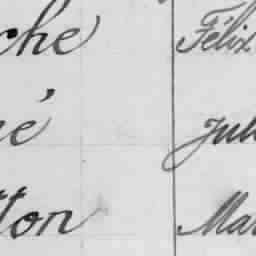 che Félix
né Jul
tton Mar